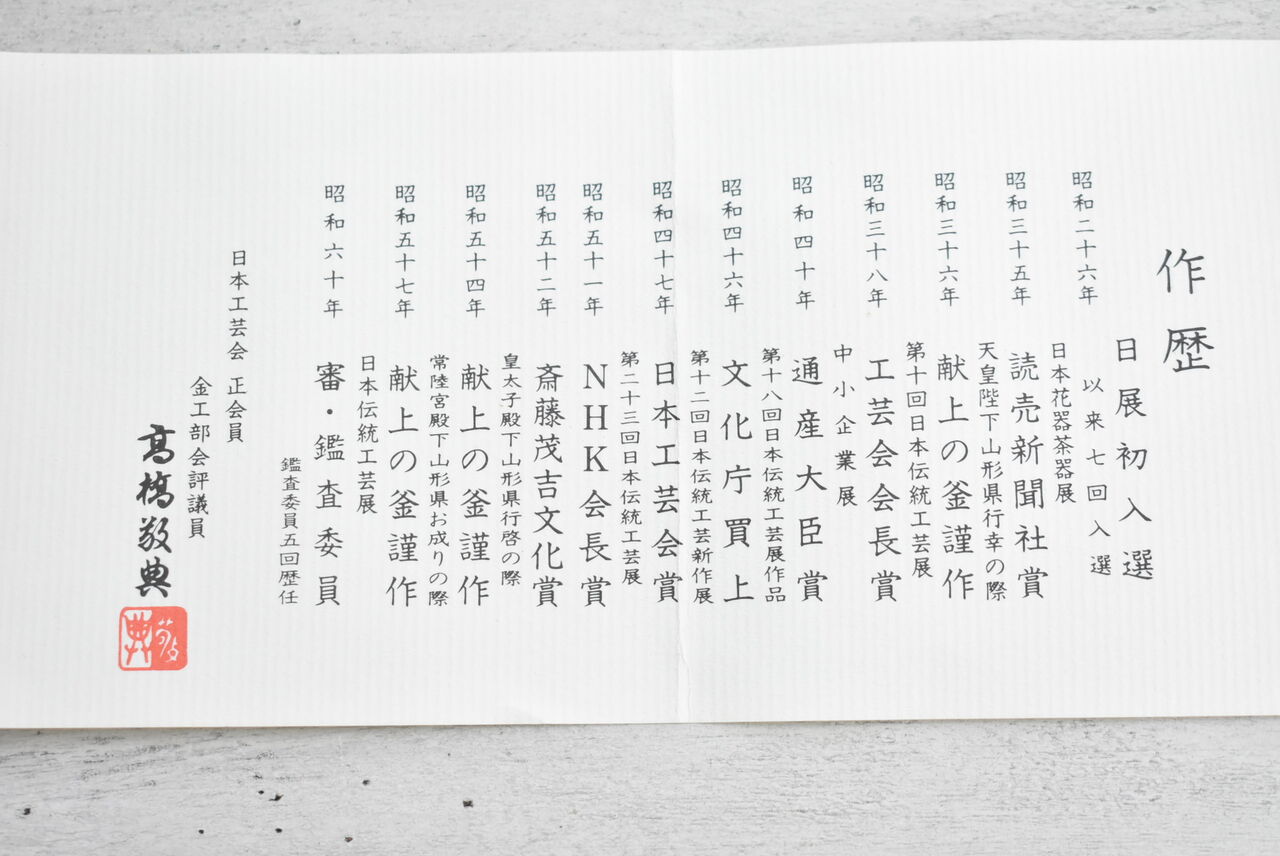 作歴
日展初入選
昭和二十六年
以来七回入選
日本花器茶器展
昭和三十五年 読売新聞社賞
天皇陛下山形県行幸の際
昭和三十六年 献上の釜謹作
第十回日本伝統工芸展
昭和三十八年 工芸会会長賞
中小企業展
昭和四十年 通産大臣賞
第十八回日本伝統工芸展作品
昭和四十六年 文化庁買上
第十二回日本伝統工芸新作展
昭和四十七年 日本工芸会賞
第二十三回日本伝統工芸展
昭和五十一年 NHK会長賞
昭和五十二年 斎藤茂吉文化賞
皇太子殿下山形県行啓の際
昭和五十四年 献上の釜謹作
常陸宮殿下山形県お成りの際
昭和五十七年 献上の釜謹作
日本伝統工芸展
昭和六十年 審・鑑査委員
鑑査委員五回歴任
日本工芸会 正会員
金工部会評議員
高橋敬典
敬典